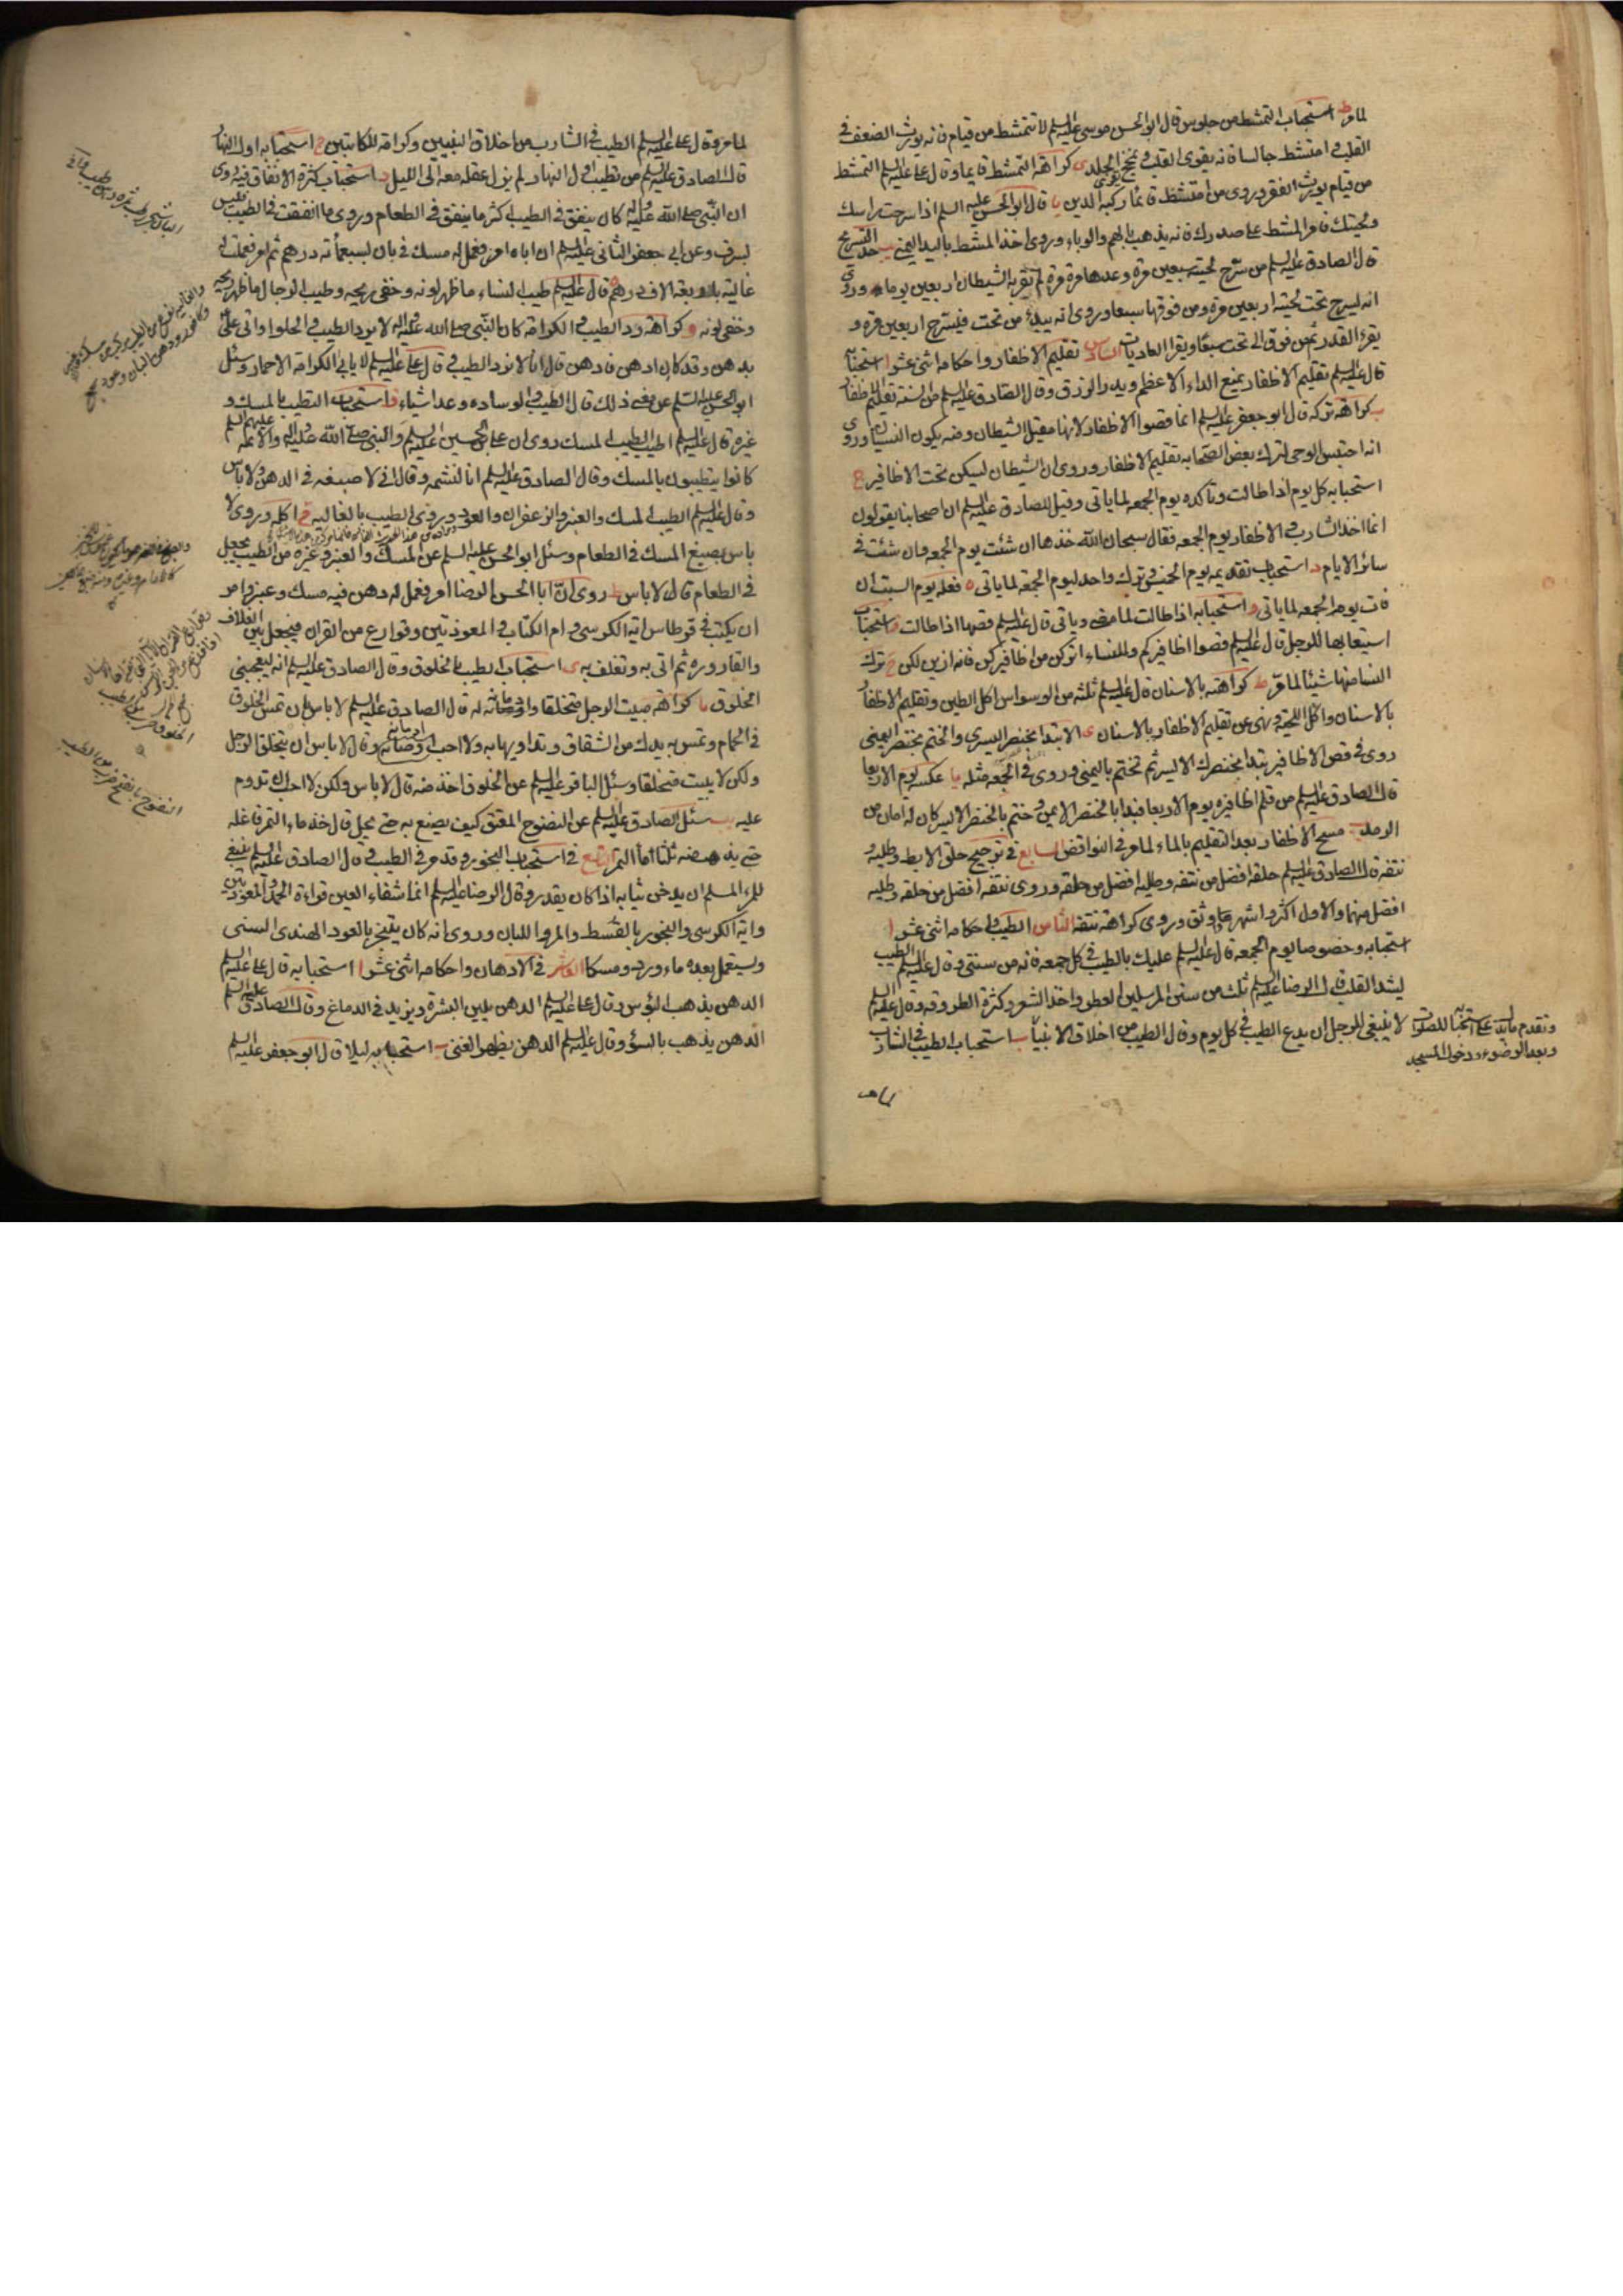 لما مر ط استحباب التمشط من جلوس قال ابو الحسن موسى عليه السلم لا تتمشط من قيام فانه يورث الضعف في
القلب و امتشط جالسا فانه يقوى القلب و يمخج الجلد ى كراهة التمشط قايما و قال على عليه السلم التمشط
من قيام يورث الفقر و روى من امتشط قائما ركبه الدين يا قال ابو الحسن عليه السلم اذا سرحت راسك
و لحيتك فامر المشط على صدرك فانه يذهب بالهم و الوباء و روى اخذ المشط باليد اليمنى يب حد التسريح
قال الصادق عليه السلم من سرح لحيته سبعين مرة و عدها مرة مرة لم يقربه الشيطان اربعين يوما و روى
انه ليسرح تحت لحيته اربعين مرة و من فوقها سبعا و روى انه يبدء من تحت فليسرح اربعين مرة و
يقرء القدر ثم من فوق الى تحت سبعا و يقرا العاديات السادس تقليم الاظفار و احكامه اثنى عشر ا استحبابه
قال عليه السلم تقليم الاظفار يمنع الداء الاعظم و يدر الرزق و قال الصادق عليه السلم من السنة تقليم الاظفار
ب كراهة تركه قال ابو جعفر عليه السلم انما قصوا الاظفار لانها مقيل الشيطان و منه يكون النسيان و روى
انه احتبس الوحى لترك بعض الصحابه تقليم الاظفار و روى ان الشيطان ليسكن تحت الاظافير ج
استحبابه كل يوم اذا طالت و تاكده يوم الجمعه لما ياتى و قيل للصادق عليه السلم ان اصحابنا يقولون
انما اخذ الشارب و الاظفار يوم الجمعه فقال سبحان الله خذها ان شئت يوم الجمعه و ان شئت في
سائر الايام د استحباب تقديمه يوم الخميس و ترك واحد ليوم الجمعة لما ياتى ه فعله يوم السبت ان
فات يوم الجمعه لما ياتى و استحبابه اذا طالت لما مضى و ياتى قال عليه السلم قصها اذا طالت ز استحباب
استيعابها للرجل قال عليه السلم قصوا اظافيركم و للنساء اتركن من اظافيركن فانه ازين لكن ح ترك
النسا منها شيئا لما مر ط كراهته بالاسنان قال عليه السلم ثلثه من الوسواس اكل الطين و تقليم الاظفار
بالاسنان و اكل اللحية و نهى عن تقليم الاظفار بالاسنان ى الابتدا بخنصر اليسرى و الختم بخنصر اليمنى
روى في قص الاظافير تبدا بخنصرك الايسر ثم تختم باليمنى و روى في الجمعه مثله يا عكسه يوم الاربعا
قال الصادق عليه السلم من قلم اظافيره يوم الاربعا فبدا بالخنصر الايمن و ختم بالخنصر الايسر كان له امان من
الرمد يب مسح الاظفار بعد التقليم بالماء لما مر في النواقض السابع في ترجيح حلق الابط و طليه و
نتفه قال الصادق عليه السلم حلقه افضل من نتفه و طليه افضل من حلقه و روى نتفه افضل من حلقه و طليه
افضل منهما و الاول اكثر و اشهر و اوثق و روى كراهة نتفه الثامن الطيب و احكامه اثنى عشر ا
استحبابه و خصوصا يوم الجمعه قال عليه السلم عليك بالطيب في كل جمعه فانه من سنتى و قال عليه السلم الطيب
يشد القلب و قال الرضا عليه السلم ثلث من سنن المرسلين العطر و اخذ الشعر و كثرة الطروقه و قال عليه السلم
لا ينبغى للرجل ان يدع الطيب في كل يوم و قال الطيب من اخلاق الانبيآ ب استحباب الطيب في الشارب
و تقدم ما يدل على استحبابه للصلوات
و بعد الوضوء و دخول المسجد
لما مر
لما مر و قال على عليه السلم الطيب في الشارب من اخلاق النبيين و كرامة للكاتبين ج استحبابه اول النهار
قال الصادق عليه السلم من تطيب اول النهار لم يزل عقله معه الى الليل د استحباب كثرة الانفاق فيه روى
ان النبى صلى الله عليه و اله كان ينفق في الطيب اكثر ما ينفق في الطعام و روى ما انفقت في الطيب فليس
بسرف و عن ابى جعفر الثانى عليه السلم ان اباه امر فعمل له مسك في بان بسبعمائه درهم ثم امر فعملت له
غالية باربعة الاف درهم ه قال عليه السلم طيب النساء ما ظهر لونه و خفى ريحه و طيب الرجال ما ظهر ريحه
و خفى لونه و كراهة رد الطيب و الكرامة كان النبى صلى الله عليه و اله لا يرد الطيب و الحلوا و اتى على
بدهن و قد كان ادهن فادهن قال انا لا نرد الطيب و قال على عليه السلم لا يابى الكرامة الا حمار و سئل
ابو الحسن عليه السلم عن معنى ذلك قال الطيب و الوساده و عد اشياء ز استحباب التطيب بالمسك و
غيره قال عليه السلم اطيب الطيب المسك روى ان على بن الحسين عليه السلم و النبى صلى الله عليه و اله و الائمة عليهم السلم
كانوا يتطيبون بالمسك و قال الصادق عليه السلم انا لنشمه و قال الا صبغه في الدهن و لا باس
و قال عليه السلم الطيب المسك و العنبر و الزعفران و العود و روى الطيب بالغاليه ح اكله و روى لا
باس بصبغ المسك في الطعام و سئل ابو الحسن عليه السلم عن المسك و العنبر و غيره من الطيب يجعل
في الطعام قال لا باس ط روى ان ابا الحسن الرضا امر فعمل له دهن فيه مسك و عنبر و امر
ان يكتب في قرطاس اية الكرسى و ام الكتاب و المعوذتين و قوارع من القران فيجعل بين الغلاف
و القاروره ثم اتى به و تغلف به ى استحباب الطيب بالخلوق و قال الصادق عليه السلم انه ليعجبنى
الخلوق يا كراهة مبيت الرجل متخلقا و ادمانه له قال الصادق عليه السلم لا باس ان تمس الخلوق
في الحمام و تمس به يدك من الشقاق و تداويها به و لا احب ادمانه و قال لا باس ان يتخلق الرجل
و لكن لا يبيت متخلقا و سئل الباقر عليه السلم عن الخلوق اخذ منه قال لا باس و لكن لا احب ان تدوم
عليه يب سئل الصادق عليه السلم عن النضوح المعتق كيف يصنع به حتى يحل قال خذ ماء التمر فاغله
حتى يذهب منه ثلثا ماء التمر التاسع في استحباب البخور و قد مر في الطيب و قال الصادق عليه السلم ينبغى
للمرء المسلم ان يدخن ثيابه اذا كان يقدر و قال الرضا عليه السلم انما شفاء العين قراءة الحمد و المعوذتين
و اية الكرسى و البخور بالقسط و المر و اللبان و روى انه كان يتبخر بالعود الهندى السنى
و يستعمل بعده ماء ورد و مسكا العاشر في الادهان و احكامه اثنى عشر ا استحبابه قال على عليه السلم
الدهن يذهب البؤس و قال على عليه السلم الدهن يلين البشرة و يزيد في الدماغ و قال الصادق عليه السلم
الدهن يذهب بالسوء و قال عليه السلم الدهن يظهر الغنى ب استحبابه ليلا قال ابو جعفر عليه السلم